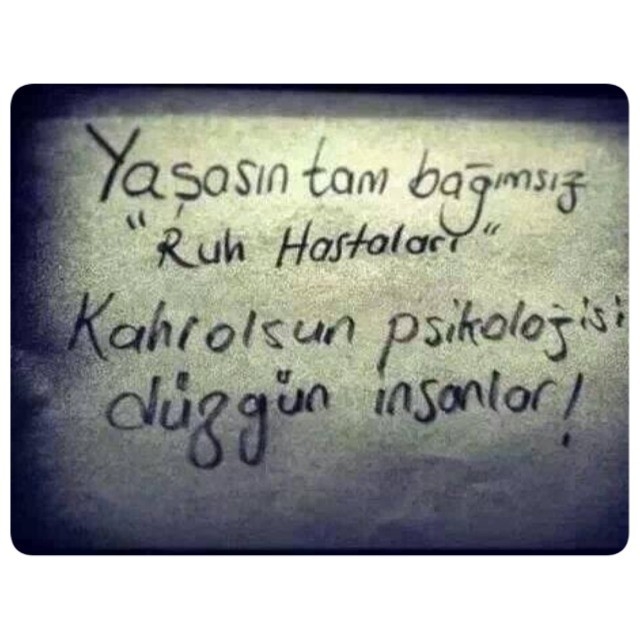 Yaşasın tam bağımsız
"Ruh Hastaları"
Kahrolsun psikoloğisi
düzgün insanlar!